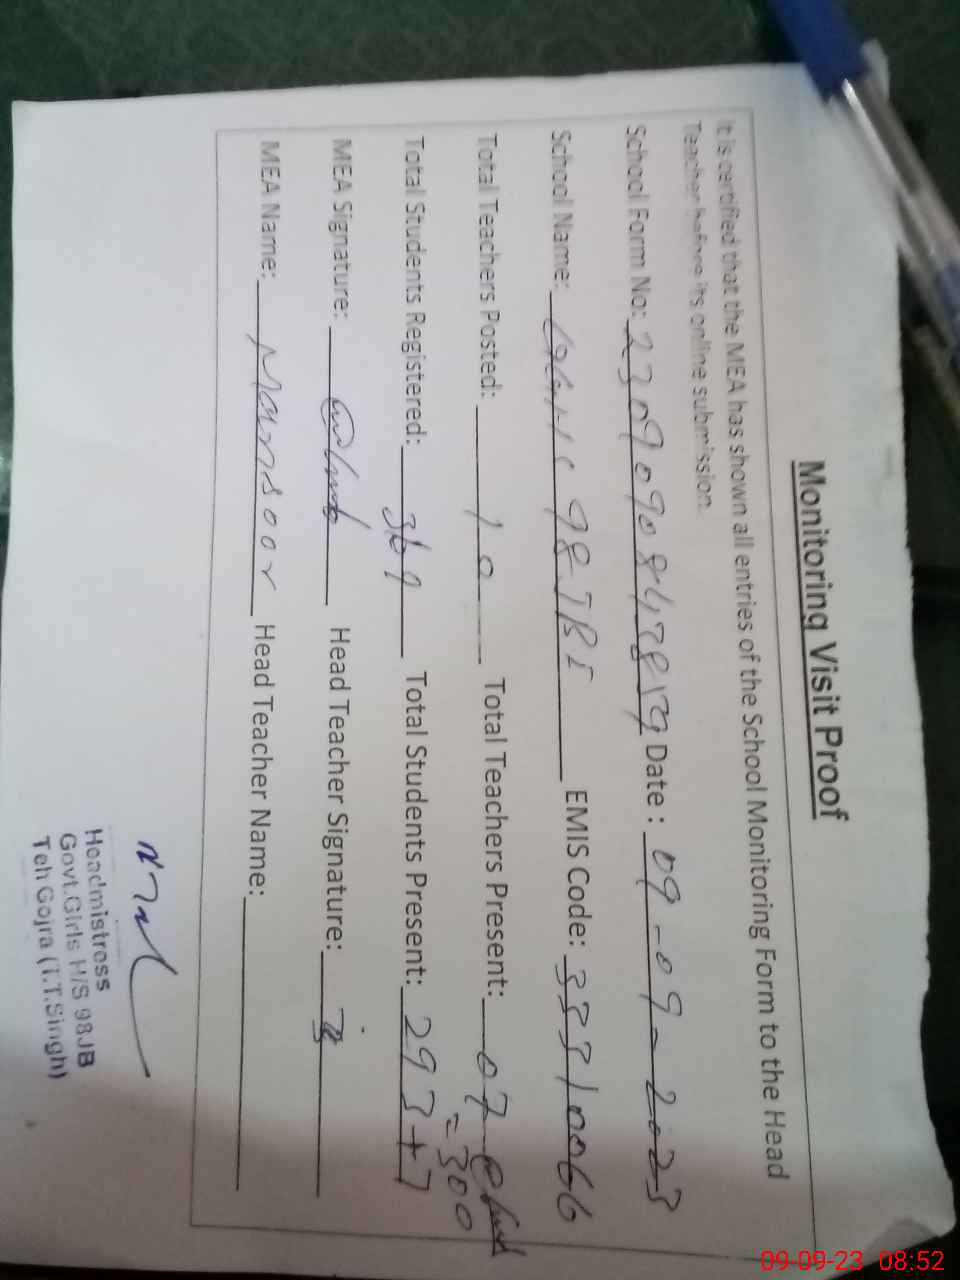 Monitoring Visit Proof
It is certified that the MEA has shown all entries of the School Monitoring Form to the Head
Teacher before its online submission.
School Form No: Date : 09-09-2023
School Name: 98 JB EMIS Code: 33310066
Total Teachers Posted: 10 Total Teachers Present: 07
Total Students Registered: 369 Total Students Present: 293+7
=300
MEA Signature: Head Teacher Signature:
MEA Name: Mansoor Head Teacher Name:
Headmistress
Govt.Girls H/S 98JB
Teh Gojra (T.T.Singh)
09-09-23 08:52